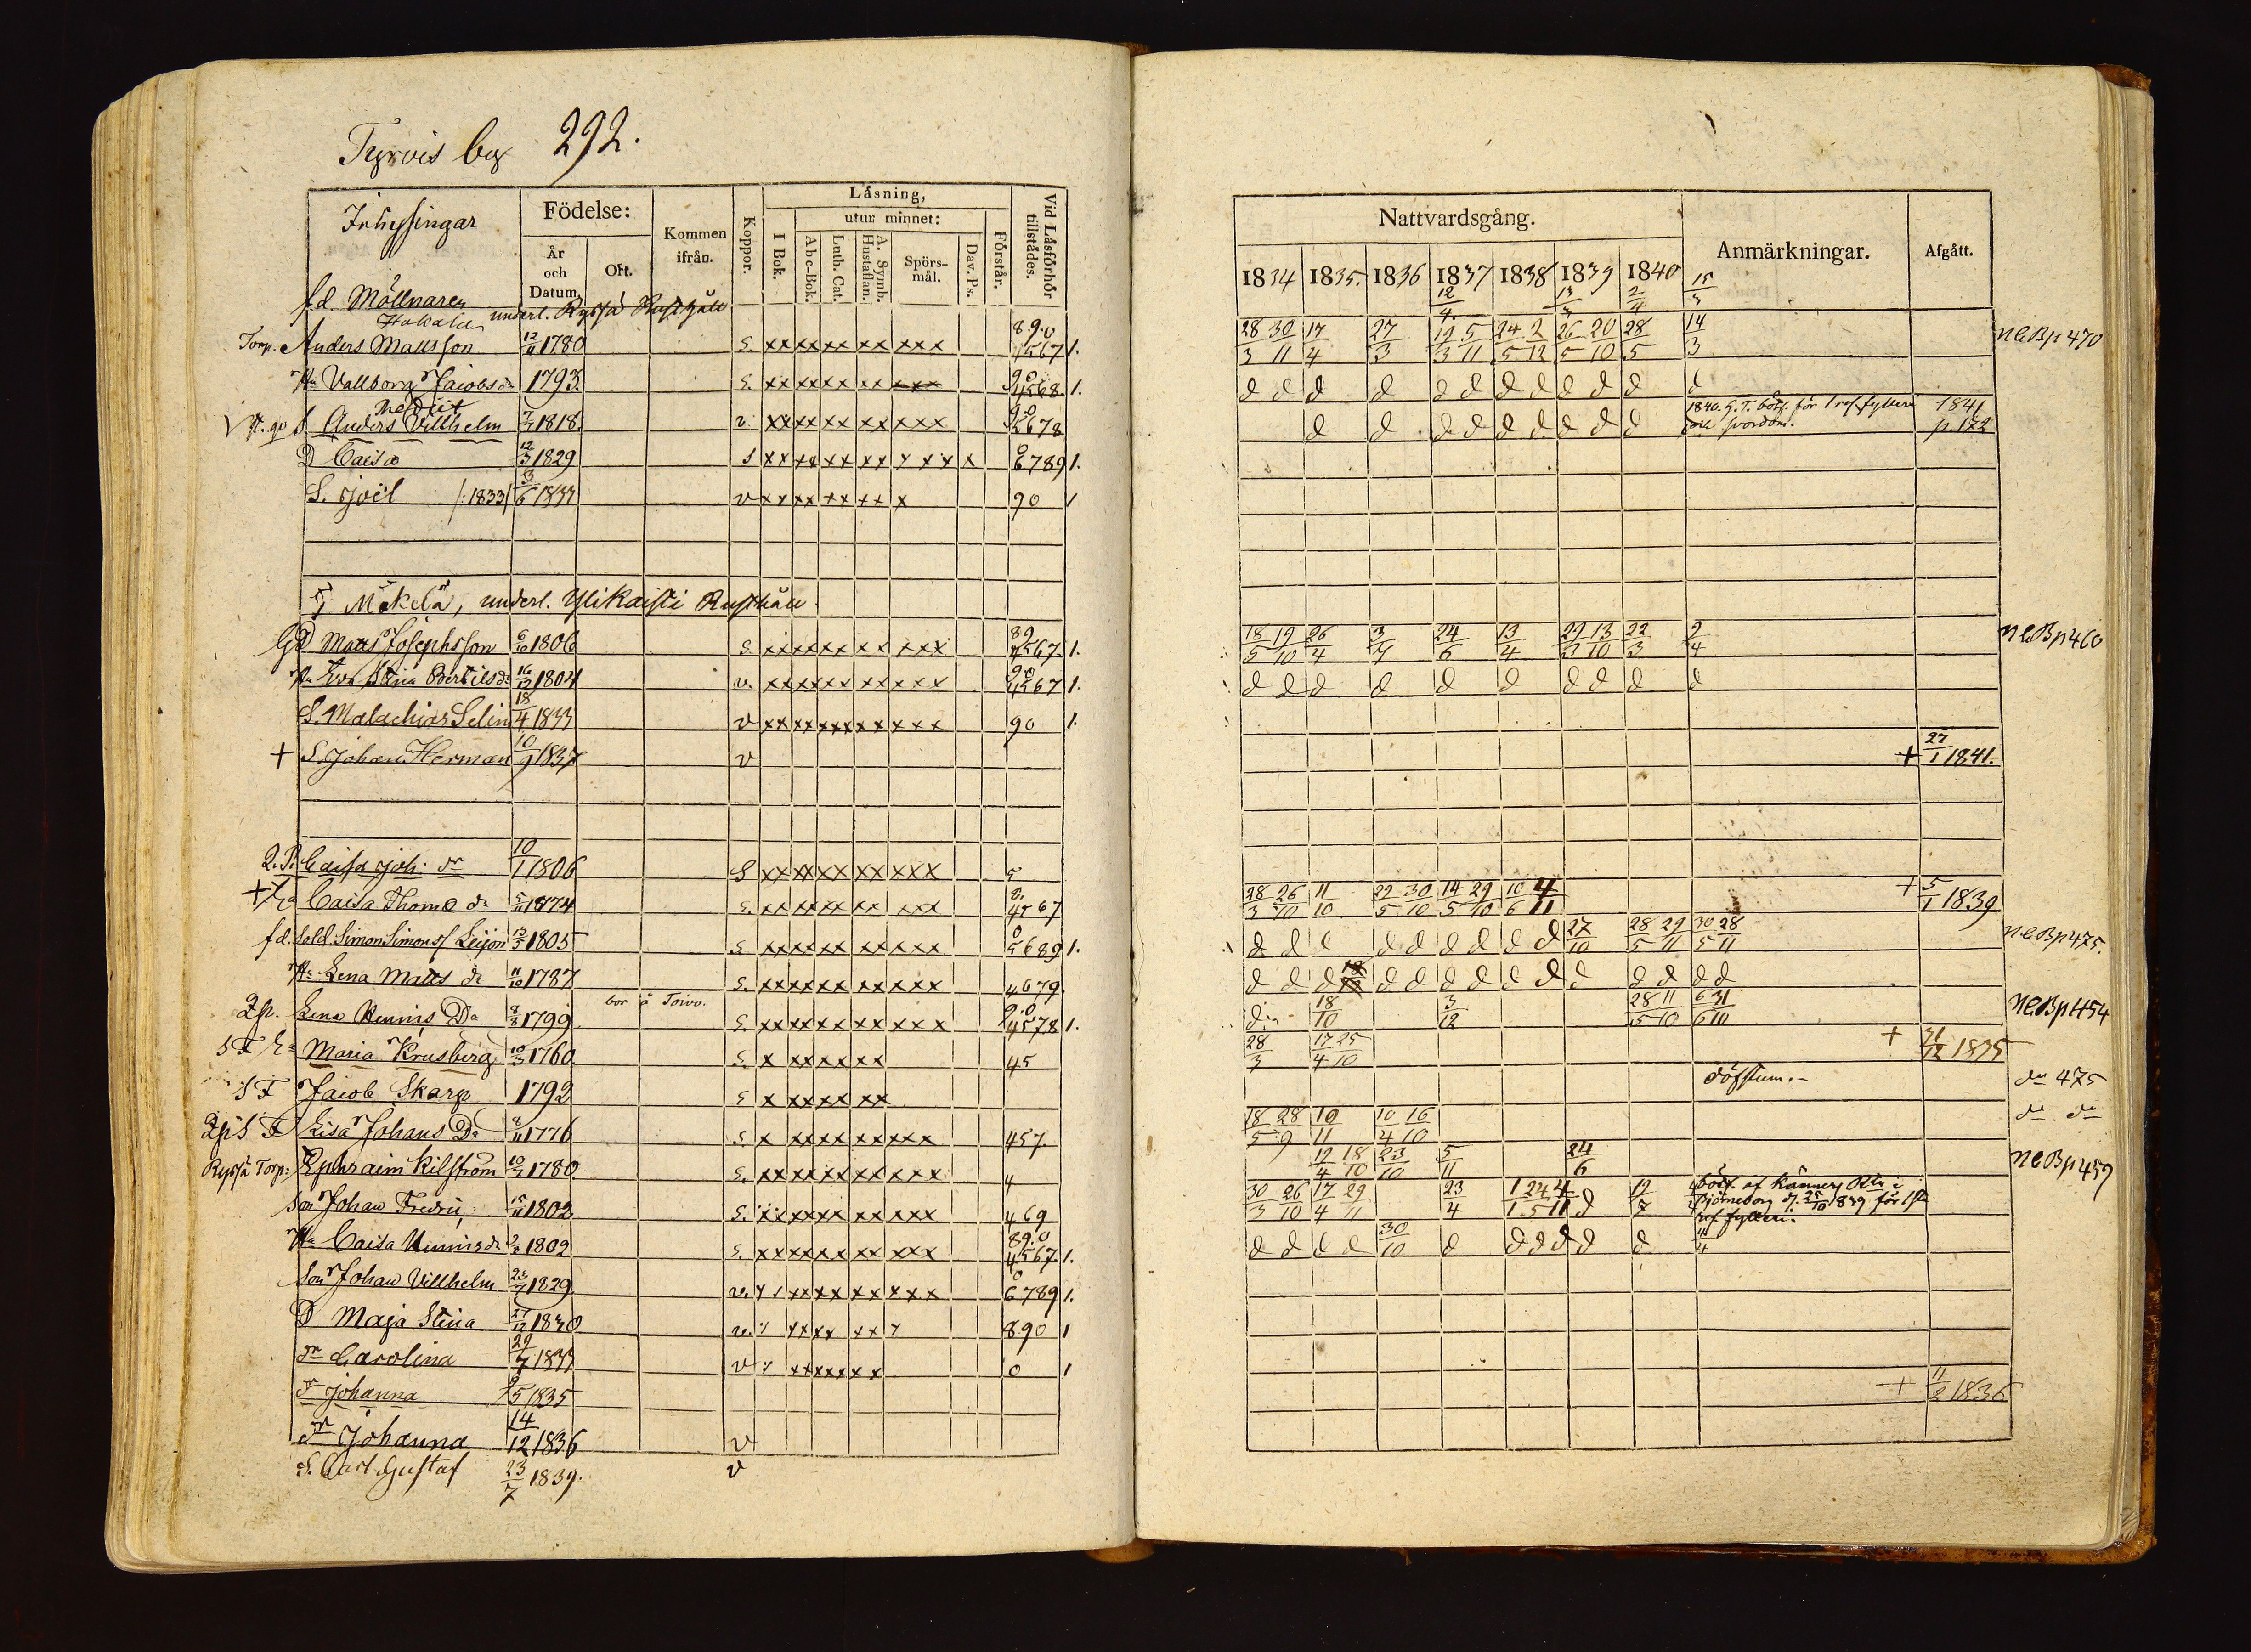 Tyrvis by 292.
Inhysingar
Födelse:
År
och
Datum,
Ort.
Kommen
ifrån.
Koppor.
Läsning,
utur minnet:
I Bok.
Abc-Bok.
Luth. Cat.
A. Symb.
Hustaflan.
Spörs-
mål.
Dav. Ps.
Förstår.
Vid Läsförhör
tillstädes.
f.d. Möllnaren
Hakala underl. Ryssä Rusthåll
Torp. Anders Mattsson 12/11 1780 S. xx xx xx xx xxx 89.0 4567 1.
Hu Vallborg Jacobs dr 1793 S. xx xx xx xx xxx 90 4568. 1.
S Anders Villhelm 7/7 1818. v. xx xx xx xx xxx 9.0 5678
D Caisa 12/3 1829 S xx xx xx xx x xx x 0 6789 1.
S. Joël /:1833/ 3/6 1833 v xx xx xx xx x 90 1
Mäkelä, underl. Ylikaisti Rusthåll.
GD. Matts Josephsson 6/10 1806 S. xx xx xx xx xxx 89 4567. 1.
Hu Eva Stina Bertilsdr 16/12 1804 v. xx xx xx xx xxx 90 4567 1.
S. Malachias Selim 18/4 1833 v xx xx xx xx xxx 90 1.
+ S. Johan Herman 10/9 1837 v
Q.P. Caisa Joh. dr 10/1 1806 S xx xx xx xx xxx 5
+ Ea Caisa Thomæ dr 5/11 1774 S. xx xx xx xx xxx 8. 4567
fd. Sold. Simon Simonss Leijon 13/5 1805 S xx xx xx xx xxx 0 5689 1.
Hu Lena Matts dr 11/10 1787 S. xx xx xx xx xxx 4679.
bor å Toivo.
Qp. Lena Henrics Dr 8/8 1799 S. xx xx xx xx xxx 9.0 4578 1.
SF Ea Maria Krusberg 10/3 1760 S. x xx xx xx 45
SF Jacob Skarp 1792 S x xx xx xx
Qp SF Lisa Johans Dr 8/11 1776 S. x xx xx xx xxx 457.
Ryssä Torp: Ephraim Kilström 10/7 1780 S. xx xx xx xx xxx 4
Son Johan Fredric 15/11 1802 S. xx xx xx xx xxx 469
Hu Caisa Henricsdr 1802 S. xx xx xx xx xxx 89.0 4567. 1.
Son Johan Villhelm 23/7 1829 v. xx xx xx xx xxx 0 6789 1.
D Maja Stina 27/12 1830 v. x xx xx xx x 890 1
dr Carolina 29/7 1833 v x xx xx xx 0 1
dr Johanna 9/5 1835
dr Johanna 14/12 1836 v
S. Carl Gustaf 23/7 1839. v
Nattvardsgång.
Anmärkningar.
Afgått.
1834 1835. 1836 1837 1838 1839 1840
12/4 13/3 2/4 15/3
28/3 30/11 17/4 27/3 19/3 5/11 24/5 2/12 26/5 20/10 28/5 14/3 NCBp 470
d d d d d d d d d d d d
d d d d d d d d d 1840. H.T. böt. för 1 res. fylleri 1841
och svordom. p. 122
18/5 19/10 26/4 3/7 24/6 13/4 29/3 13/10 22/3 2/4 NCBp 460
d d d d d d d d d d
+ 27/1 1841.
28/3 26/10 11/10 22/5 30/10 14/5 29/10 10/6 4/11 + 5/1 1839
d d d d d d d d d 27/10 28/5 29/11 30/5 28/11 NCBp 475.
d d d d d d d d d d d d d d
18/10 3/12 28/5 11/10 6/6 31/10 NCBp 454
28/3 17/4 25/10 + 31/12 1835
döfstum. do 475
18/5 28/9 10/11 10/4 16/10 do do
12/4 18/10 23/10 5/11 24/6 NCBp 459
30/3 26/10 17/4 29/11 23/4 1/1 24/5 4/11 d 19/7 böt. af Kämners Rtn i
Björneborg d. 25/10 1839 för 1sta
res. fylleri.
d d d d 30/10 d d d d d d 4/4
+ 11/2 1836